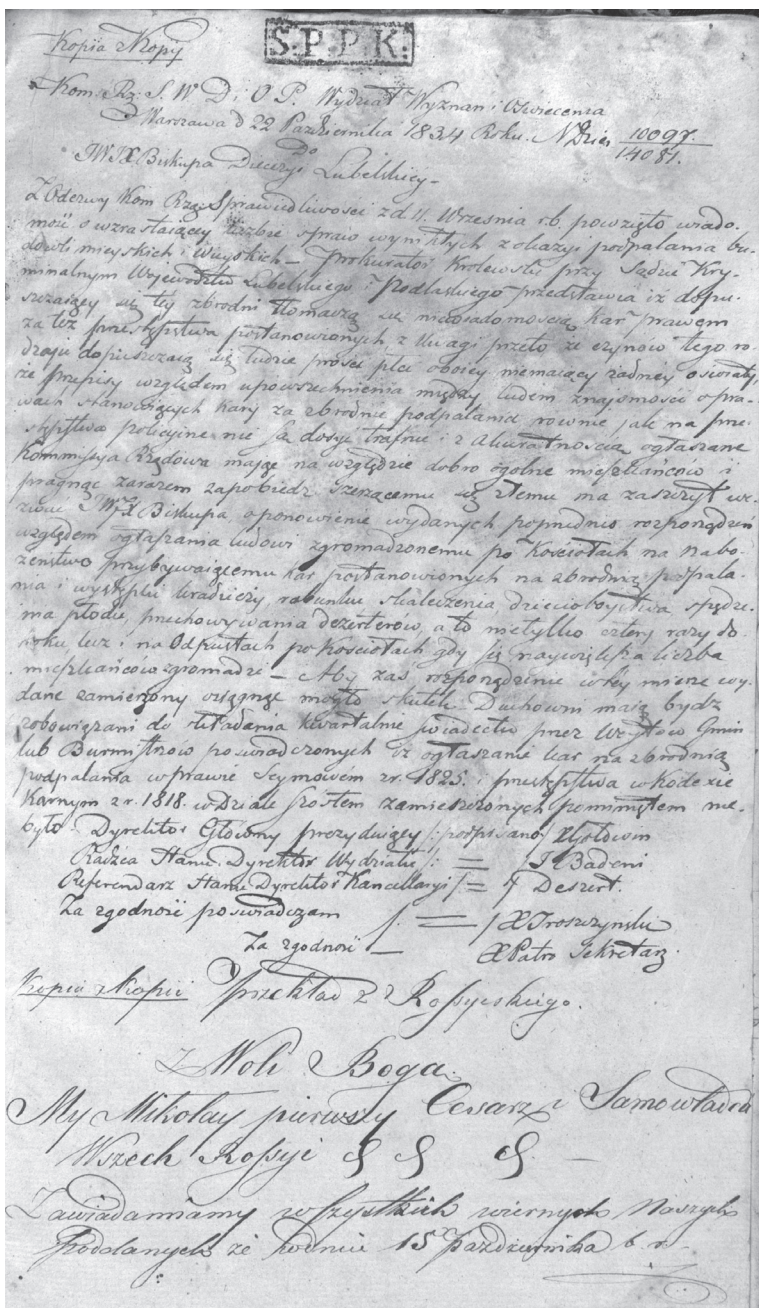 Kopia z Kopij
S.P.P.K.
Kom. Rz. S. W. D. i O. P. Wydział Wyznań i Oswiecenia
Warszawa d 22 Października 1834 Roku. N Dzien 10097/14081.
Do
JWJX Biskupa Diecezyi Lubelskiey –
Z Odezwy Kom Rząd: Sprawiedliwosci z d 11. Wrzesnia r.b. powzięto wiado-
mość o wzrastaiącey liczbie spraw wynikłych z okazyi podpalania bu-
dowli mieyskich i wieyskich – Prokurator Krolewski przy Sądzie Kry-
minalnym Wojewodztw Lubelskiego i Podlaskiego przedstawia iż dopu-
szczaiący się tey zbrodni tłomaczą się niewiadomoscią kar prawem
za też przestępstwa postanowionych, z Uwagi przeto że czynów tego ro-
dzaju dopuszczaią się ludzie prosci płci oboiey niemaiący żadney oswiaty,
że przepisy względem upowszechnienia między ludem znajomości o pra-
wach stanowiących kary za zbrodnie podpalania rownie jak na prze-
stępstwa policyine nie są dosyć trafnie i z Akuratnością ogłaszane
Kommissya Rządowa maiąc na względzie dobro ogolne mieszkańców i
pragnąc zarazem zapobiedz szerzącemu się złemu ma zaszczyt we-
zwać JWJX Biskupa, o ponowienie wydanych poprzednio rozporządzeń
względem ogłaszania ludowi zgromadzonemu po Kosciołach na nabo-
żeństwo przybywaiącemu kar postanowionych na zbrodnią podpala-
nia i występki kradzieży, rabunku skaleczenia, dzieciobóystwa spędze-
nia płodu, przechowywania dezerterów, a to nietylko cztery razy do
roku lecz i na Odpustach po Kosciołach gdy się naywiększa liczba
mieszkańców zgromadzi – Aby zaś rozporządzenie w tey mierze wy-
dane zamierzony osiągnąć mogło skutek Duchowni maią bydz
zobowiązani do składania kwartalnie świadectw przez Woytów Gmin
lub Burmistrzów poswiadczonych iż ogłaszanie kar na zbrodnią
podpalania w prawie Seymowém z r. 1825. i przestępstwa w Kodexie
Karnym z r. 1818. w Dziale szostem zamieszczonych pominiętem nie
było. Dyrektor Główny prezyduiący /: podpisano/ Gołowin
Radzca Stanu Dyrektor Wydziału /: = / Badeni
Referendarz Stanu Dyrektor Kancellaryi /: = / Deszert.
Za zgodność poswiadczam /. = / X Troszczyński
Za zgodność – X Patro Sekretarz.
Kopia z Kopii Przekład z Rossyiskiego.
Z Woli Boga.
My Mikołay pierwszy Cesarz i Samowładca
Wszech Rossyi
Zawiadamiamy wszystkich wiernych Naszych
Poddanych że w dniu 15 Października b. r.